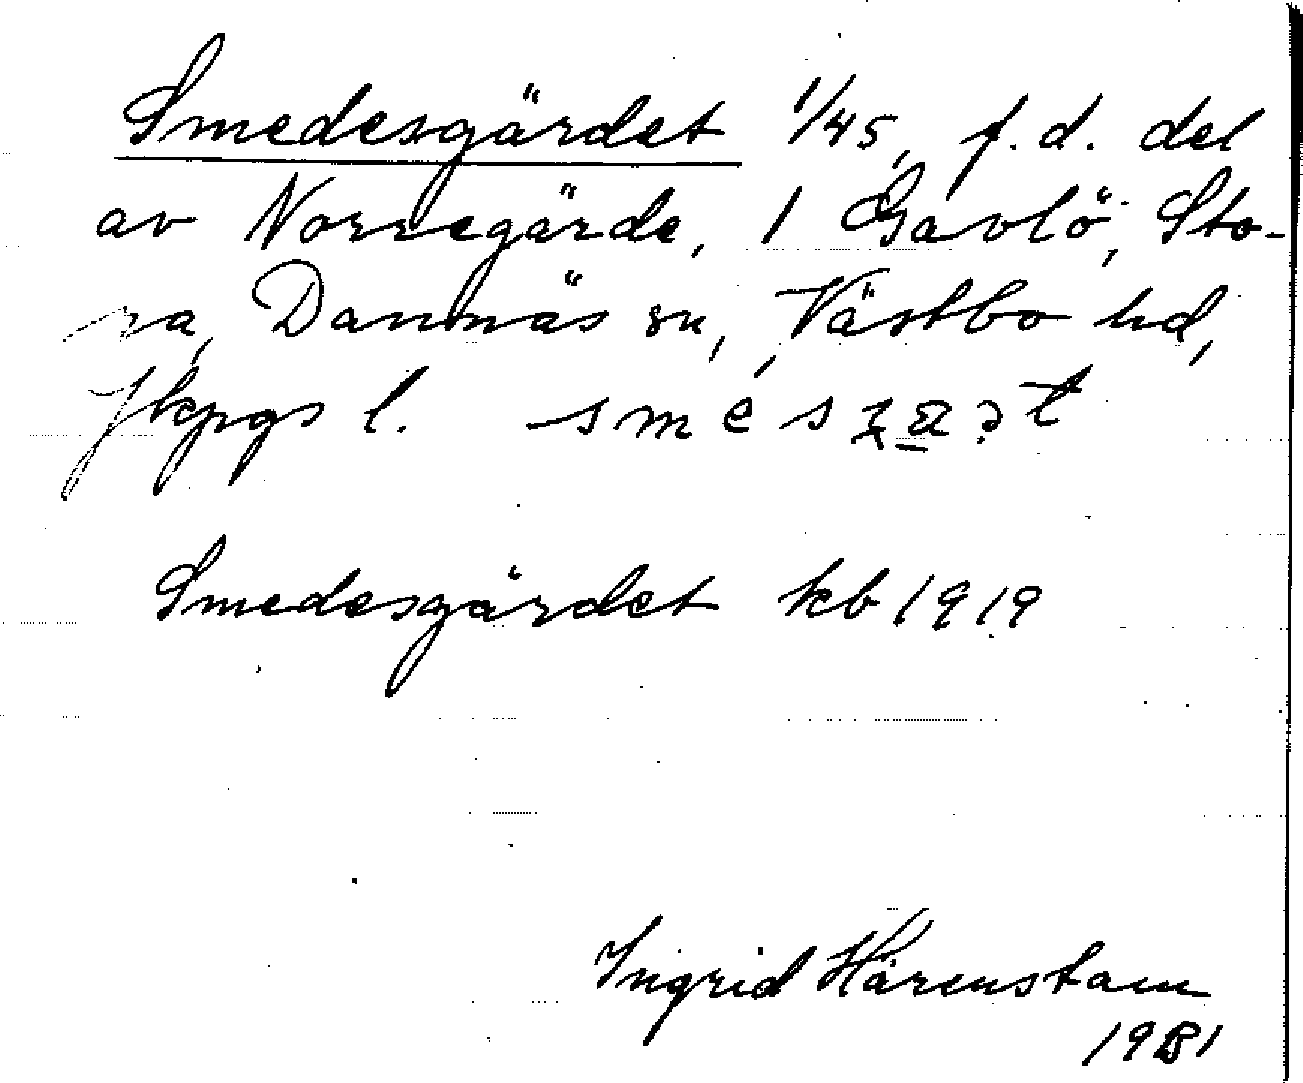 Smedesgärdet 1/45, f.d. del
av Norregärde, 1 Gavlö, Sto-
ra, Dannäs sn, Västbo hd,
Jkpgs l.
Smedesgärdet kb 1919
Ingrid Härenstam
1981